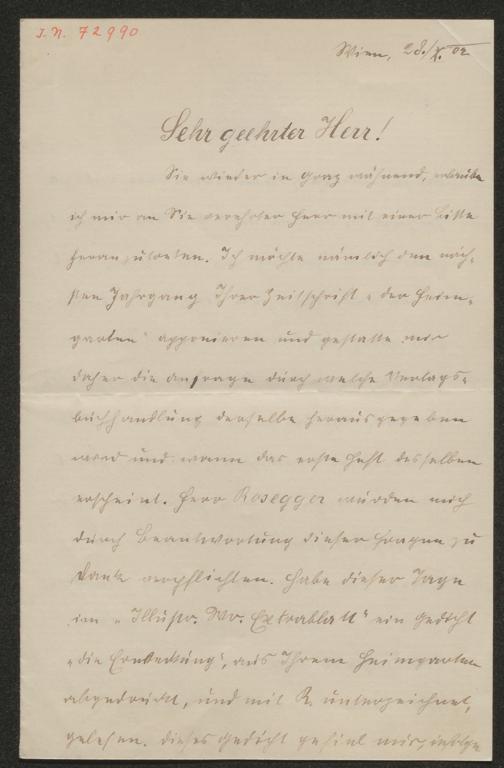 I.N. 72990
Wien, 28./X. 02
Sehr geehrter Herr!
Sie wieder in Graz wähnend, erlaube
ich mir an Sie verehrter Herr mit einer Bitte
heranzutreten. Ich möchte nämlich den näch-
sten Jahrgang Ihrer Zeitschrift „der Heim-
garten" abonnieren und gestatte mir
daher die Anfrage durch welche Verlags-
buchhandlung derselbe herausgegeben
wird und wann das erste Heft desselben
erscheint. Herr Rosegger würden mich
durch Beantwortung dieser Fragen zu
Danke verpflichten. Habe dieser Tage
im „Illustr. Wr. Extrablatt" ein Gedicht
„die Entdeckung", aus Ihrem Heimgarten
abgedruckt, und mit R. unterzeichnet,
gelesen. Dieses Gedicht gefiel mir, infolge